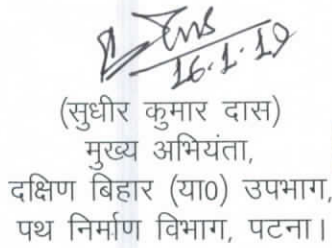 16.1.19
(सुधीर कुमार दास)
मुख्य अभियंता,
दक्षिण बिहार (या0) उपभाग,
पथ निर्माण विभाग, पटना।